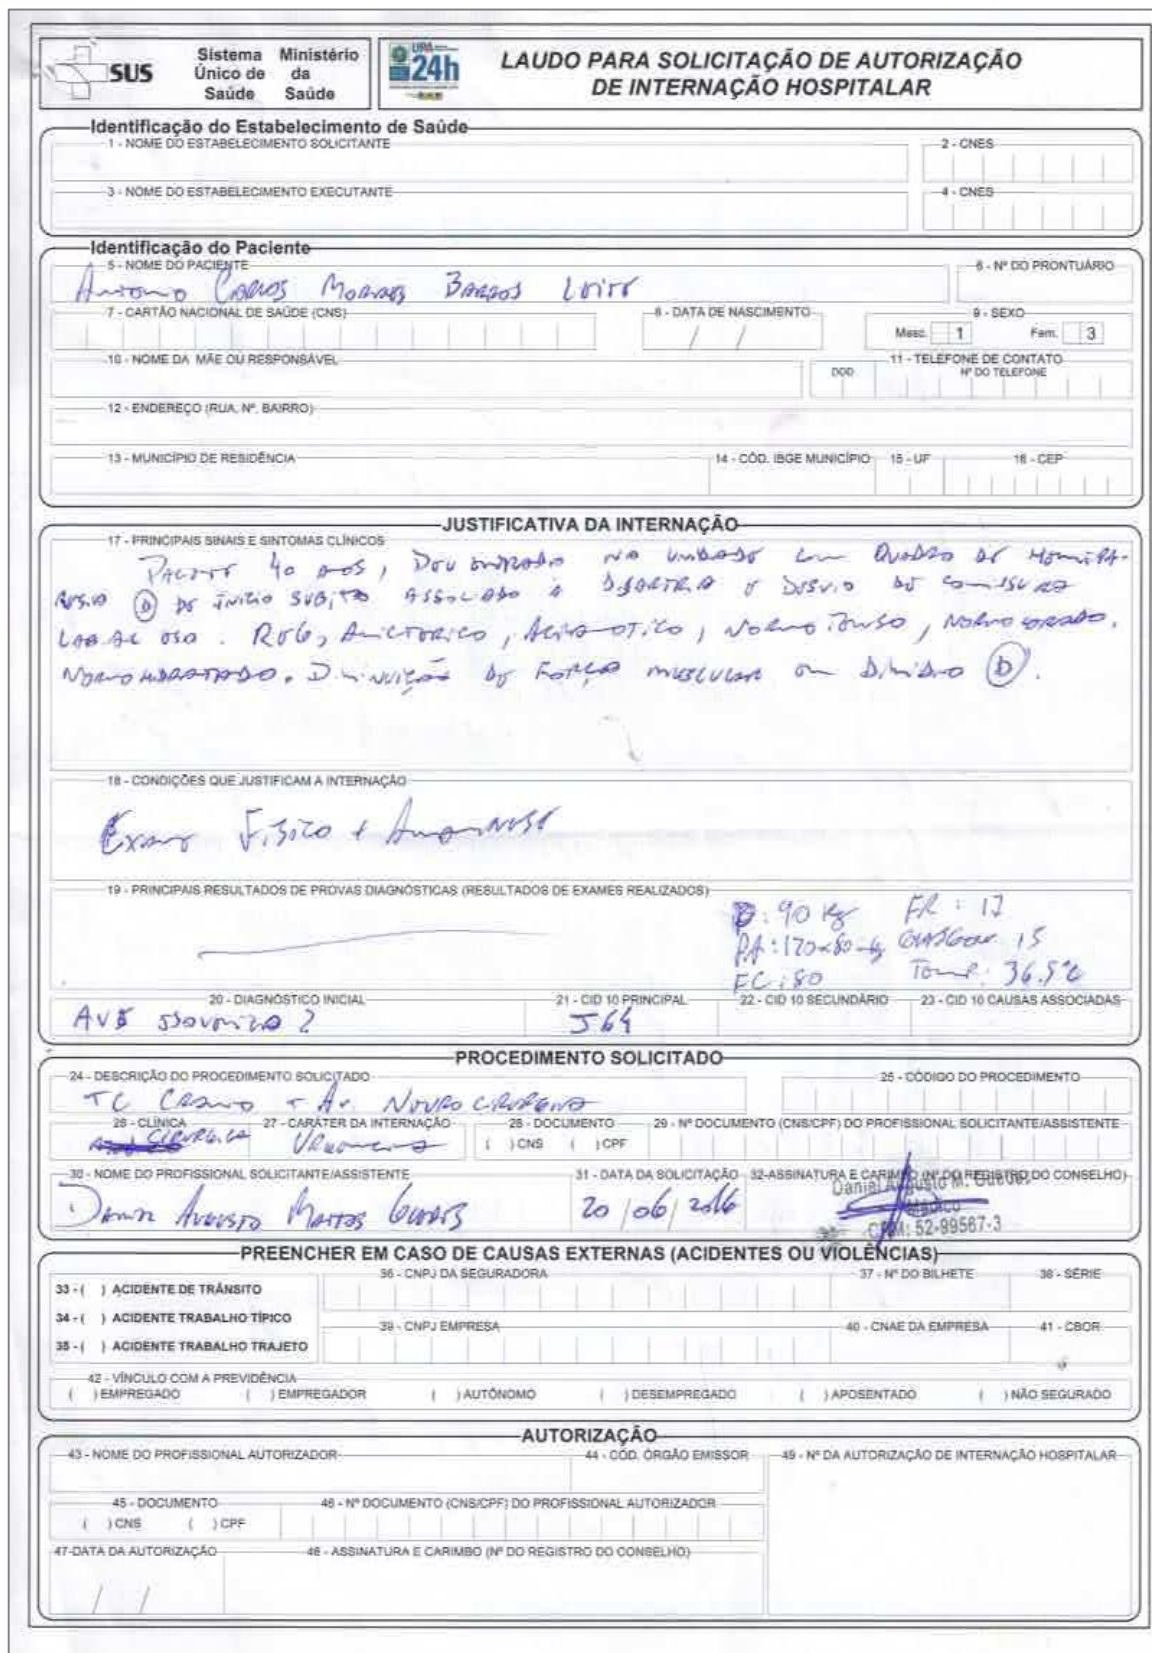 SUS
Sistema Único de Saúde
Ministério da Saúde
UPA 24h
LAUDO PARA SOLICITAÇÃO DE AUTORIZAÇÃO
DE INTERNAÇÃO HOSPITALAR
Identificação do Estabelecimento de Saúde
1 - NOME DO ESTABELECIMENTO SOLICITANTE 2 - CNES
3 - NOME DO ESTABELECIMENTO EXECUTANTE 4 - CNES
Identificação do Paciente
5 - NOME DO PACIENTE 6 - Nº DO PRONTUÁRIO
Antonio Carlos Moraes Barros
7 - CARTÃO NACIONAL DE SAÚDE (CNS) 8 - DATA DE NASCIMENTO 9 - SEXO
/ / Masc. 1 Fem. 3
10 - NOME DA MÃE OU RESPONSÁVEL 11 - TELEFONE DE CONTATO
DDD Nº DO TELEFONE
12 - ENDEREÇO (RUA, Nº, BAIRRO)
13 - MUNICÍPIO DE RESIDÊNCIA 14 - CÓD. IBGE MUNICÍPIO 15 - UF 16 - CEP
JUSTIFICATIVA DA INTERNAÇÃO
17 - PRINCIPAIS SINAIS E SINTOMAS CLÍNICOS
Paciente 40 anos, deu entrada na unidade com quadro de hemipa-
resia D de início súbito associado a disartria e desvio de comissura
labial. REG, anictérico, acianótico, normotenso, normocorado,
normohidratado. Diminuição de força muscular em dimidio D.
18 - CONDIÇÕES QUE JUSTIFICAM A INTERNAÇÃO
Exame Físico + Anamnese
19 - PRINCIPAIS RESULTADOS DE PROVAS DIAGNÓSTICAS (RESULTADOS DE EXAMES REALIZADOS)
P: 90 kg FR: 17
PA: 120x80 Glasgow 15
FC: 80 Temp: 36.5°C
20 - DIAGNÓSTICO INICIAL 21 - CID 10 PRINCIPAL 22 - CID 10 SECUNDÁRIO 23 - CID 10 CAUSAS ASSOCIADAS
AVE isquemico ? I64
PROCEDIMENTO SOLICITADO
24 - DESCRIÇÃO DO PROCEDIMENTO SOLICITADO 25 - CÓDIGO DO PROCEDIMENTO
TC Cranio + Av. Neurocirurgia
26 - CLÍNICA 27 - CARÁTER DA INTERNAÇÃO 28 - DOCUMENTO 29 - Nº DOCUMENTO (CNS/CPF) DO PROFISSIONAL SOLICITANTE/ASSISTENTE
Cirurgica Urgencia ( ) CNS ( ) CPF
30 - NOME DO PROFISSIONAL SOLICITANTE/ASSISTENTE 31 - DATA DA SOLICITAÇÃO 32-ASSINATURA E CARIMBO (Nº DO REGISTRO DO CONSELHO)
Daniel Augusto Mattos 20/06/2016
Daniel Augusto M.
Médico
CRM: 52-99567-3
PREENCHER EM CASO DE CAUSAS EXTERNAS (ACIDENTES OU VIOLÊNCIAS)
33 - ( ) ACIDENTE DE TRÂNSITO 36 - CNPJ DA SEGURADORA 37 - Nº DO BILHETE 38 - SÉRIE
34 - ( ) ACIDENTE TRABALHO TÍPICO
35 - ( ) ACIDENTE TRABALHO TRAJETO 39 - CNPJ EMPRESA 40 - CNAE DA EMPRESA 41 - CBOR
42 - VÍNCULO COM A PREVIDÊNCIA
( ) EMPREGADO ( ) EMPREGADOR ( ) AUTÔNOMO ( ) DESEMPREGADO ( ) APOSENTADO ( ) NÃO SEGURADO
AUTORIZAÇÃO
43 - NOME DO PROFISSIONAL AUTORIZADOR 44 - CÓD. ÓRGÃO EMISSOR 49 - Nº DA AUTORIZAÇÃO DE INTERNAÇÃO HOSPITALAR
45 - DOCUMENTO 46 - Nº DOCUMENTO (CNS/CPF) DO PROFISSIONAL AUTORIZADOR
( ) CNS ( ) CPF
47-DATA DA AUTORIZAÇÃO 48 - ASSINATURA E CARIMBO (Nº DO REGISTRO DO CONSELHO)
/ /